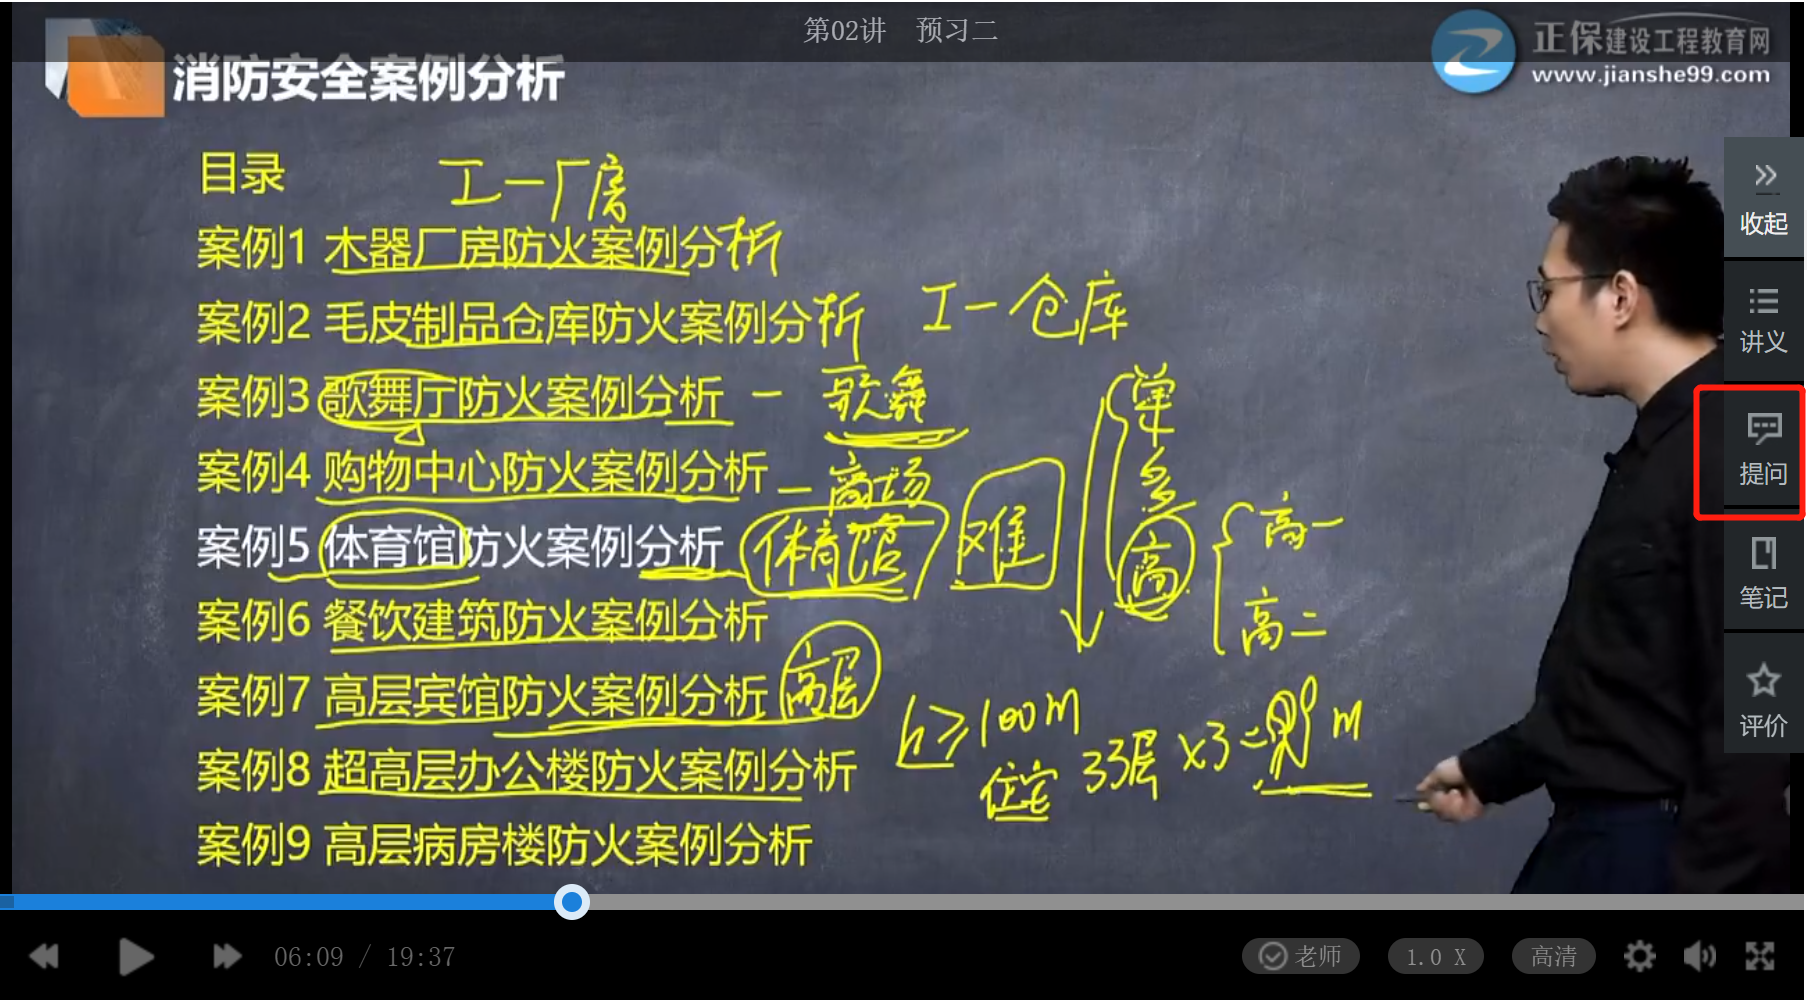 第02讲 预习二
正保建设工程教育网
www.jianshe99.com
消防安全案例分析
收起
讲义
提问
笔记
评价
目录
工一厂房
案例1 木器厂房防火案例分析
案例2 毛皮制品仓库防火案例分析
工一仓库
案例3 歌舞厅防火案例分析 一 歌舞
单
多
高
案例4 购物中心防火案例分析 一 商场
案例5 体育馆防火案例分析 体育馆 难
高一
高二
案例6 餐饮建筑防火案例分析
案例7 高层宾馆防火案例分析 高层
h≥100m
住宅 33层 x3=99m
案例8 超高层办公楼防火案例分析
案例9 高层病房楼防火案例分析
06:09 / 19:37
老师
1.0 X
高清